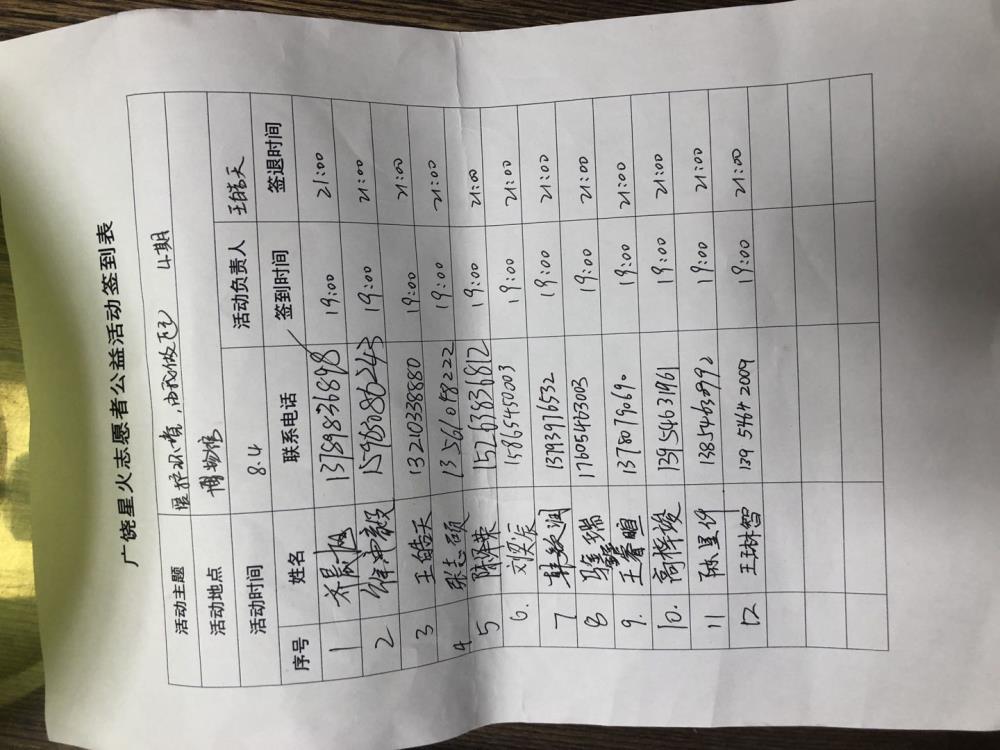 广饶星火志愿者公益活动签到表
活动主题 4期
活动地点 博物馆 活动负责人 王皓天
活动时间 8.4
序号 姓名 联系电话 签到时间 签退时间
1 13789836898 19:00 21:00
2 1598086243 19:00 21:00
3 王皓天 13210338880 19:00 21:00
4 张志硕 13561048222 19:00 21:00
5 陈泽荣 15263836812 19:00 21:00
6. 刘奕辰 15865450003 19:00 21:00
7 韩毅润 13793976532 19:00 21:00
8 瑞 17605463003 19:00 21:00
9. 王睿暄 1378079069 19:00 21:00
10. 高梓骏 13954631961 19:00 21:00
11 13854639992 19:00 21:00
12 王琳智 139 5464 2009 19:00 21:00